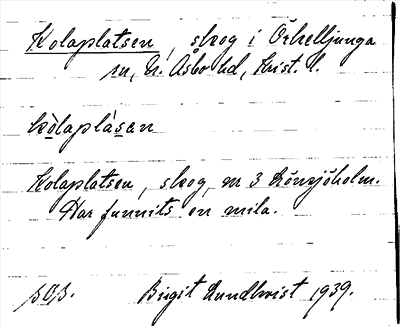 Kolaplatsen, skog i Örkelljunga
sn, N. Åsbo hd, Krist. l.
kòlaplásan
Kolaplatsen, skog, nr 3 Rönnsjöholm.
Har funnits en mila.
Birgit Lundkvist 1939.